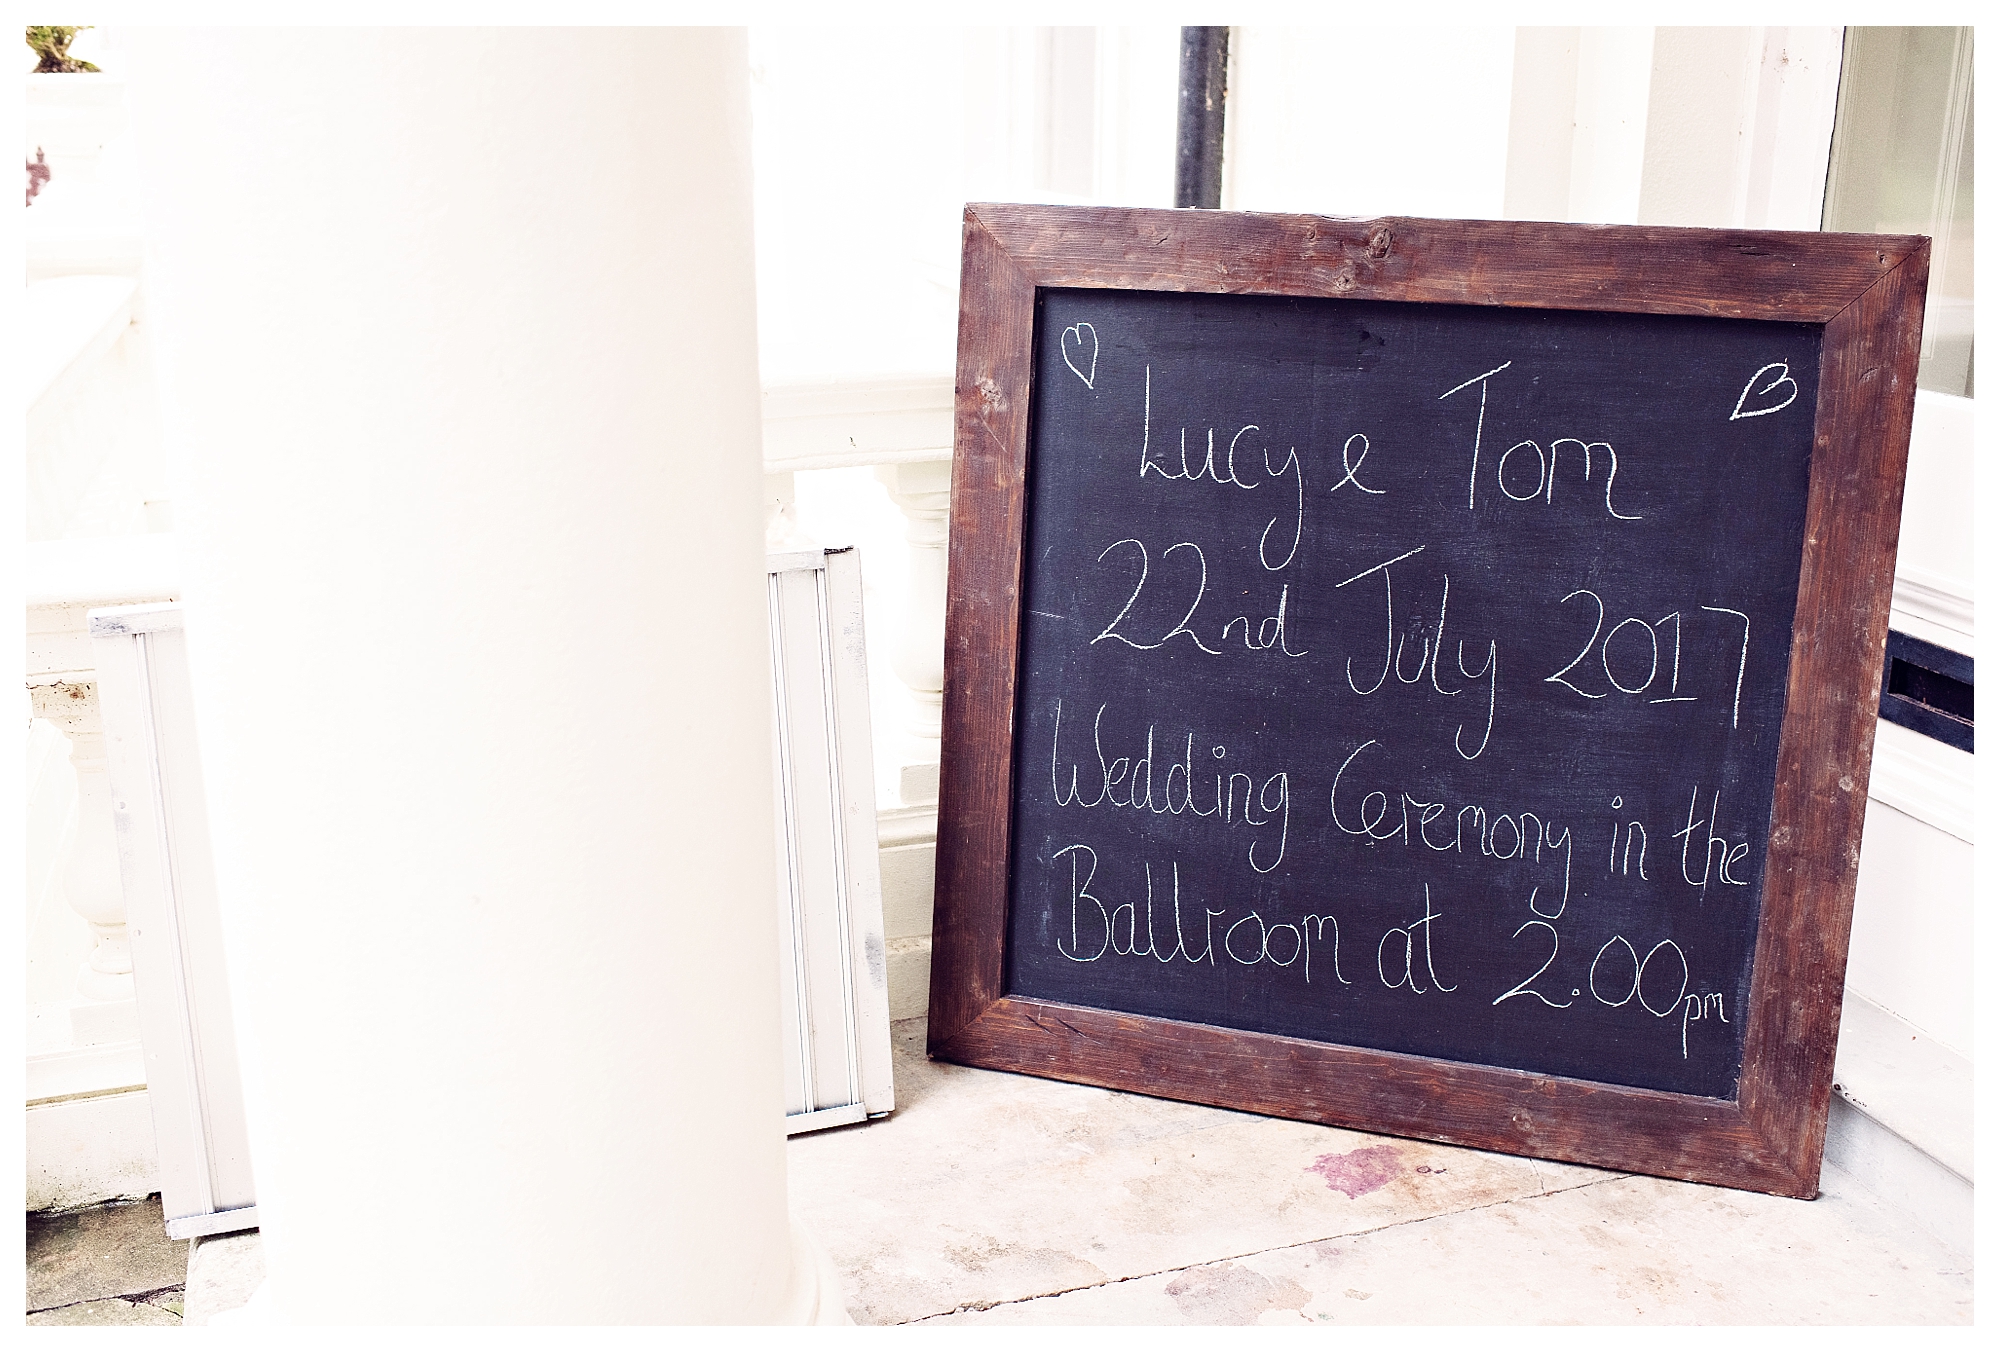 Lucy & Tom
22nd July 2017
Wedding Ceremony in the
Ballroom at 2.00pm